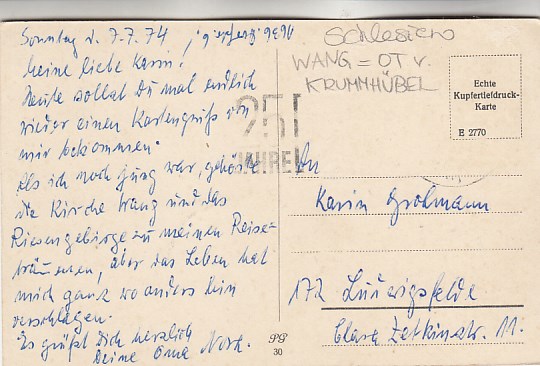 Sonntag d. 7.7.74
Meine liebe Karin!
Heute sollst Du mal endlich
wieder einen Kartengruß von
mir bekommen.
Als ich noch jung war, gehörte
die Kirche Wang und das
Riesengebirge zu meinen Reise-
träumen, aber das Leben hat
mich ganz wo anders hin
verschlagen.
Es grüßt Dich herzlich
Deine Oma
Schlesien
WANG = OT v.
KRUMMHÜBEL
Echte
Kupfertiefdruck-
Karte
E 2770
25
JAHRE
An
Karin Grohmann
172 Ludwigsfelde
Clara Zetkinstr. 11.
SG
30